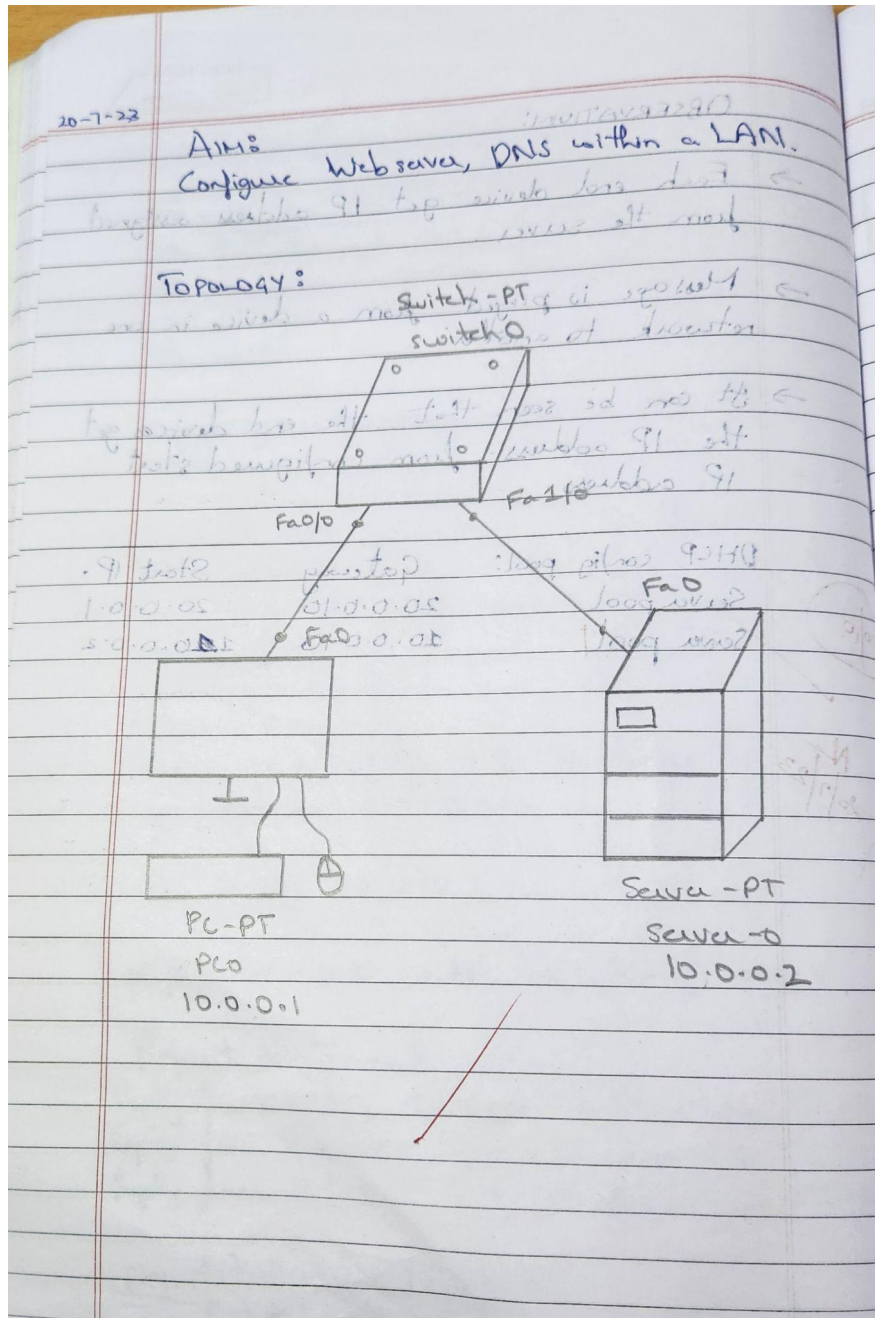 20-7-23
AIM:
Configure Webserver, DNS within a LAN.
TOPOLOGY:
Switch-PT
switch0
Fa0/0
Fa1/0
Fa0
Fa0
PC-PT
PC0
10.0.0.1
Server-PT
Server-0
10.0.0.2